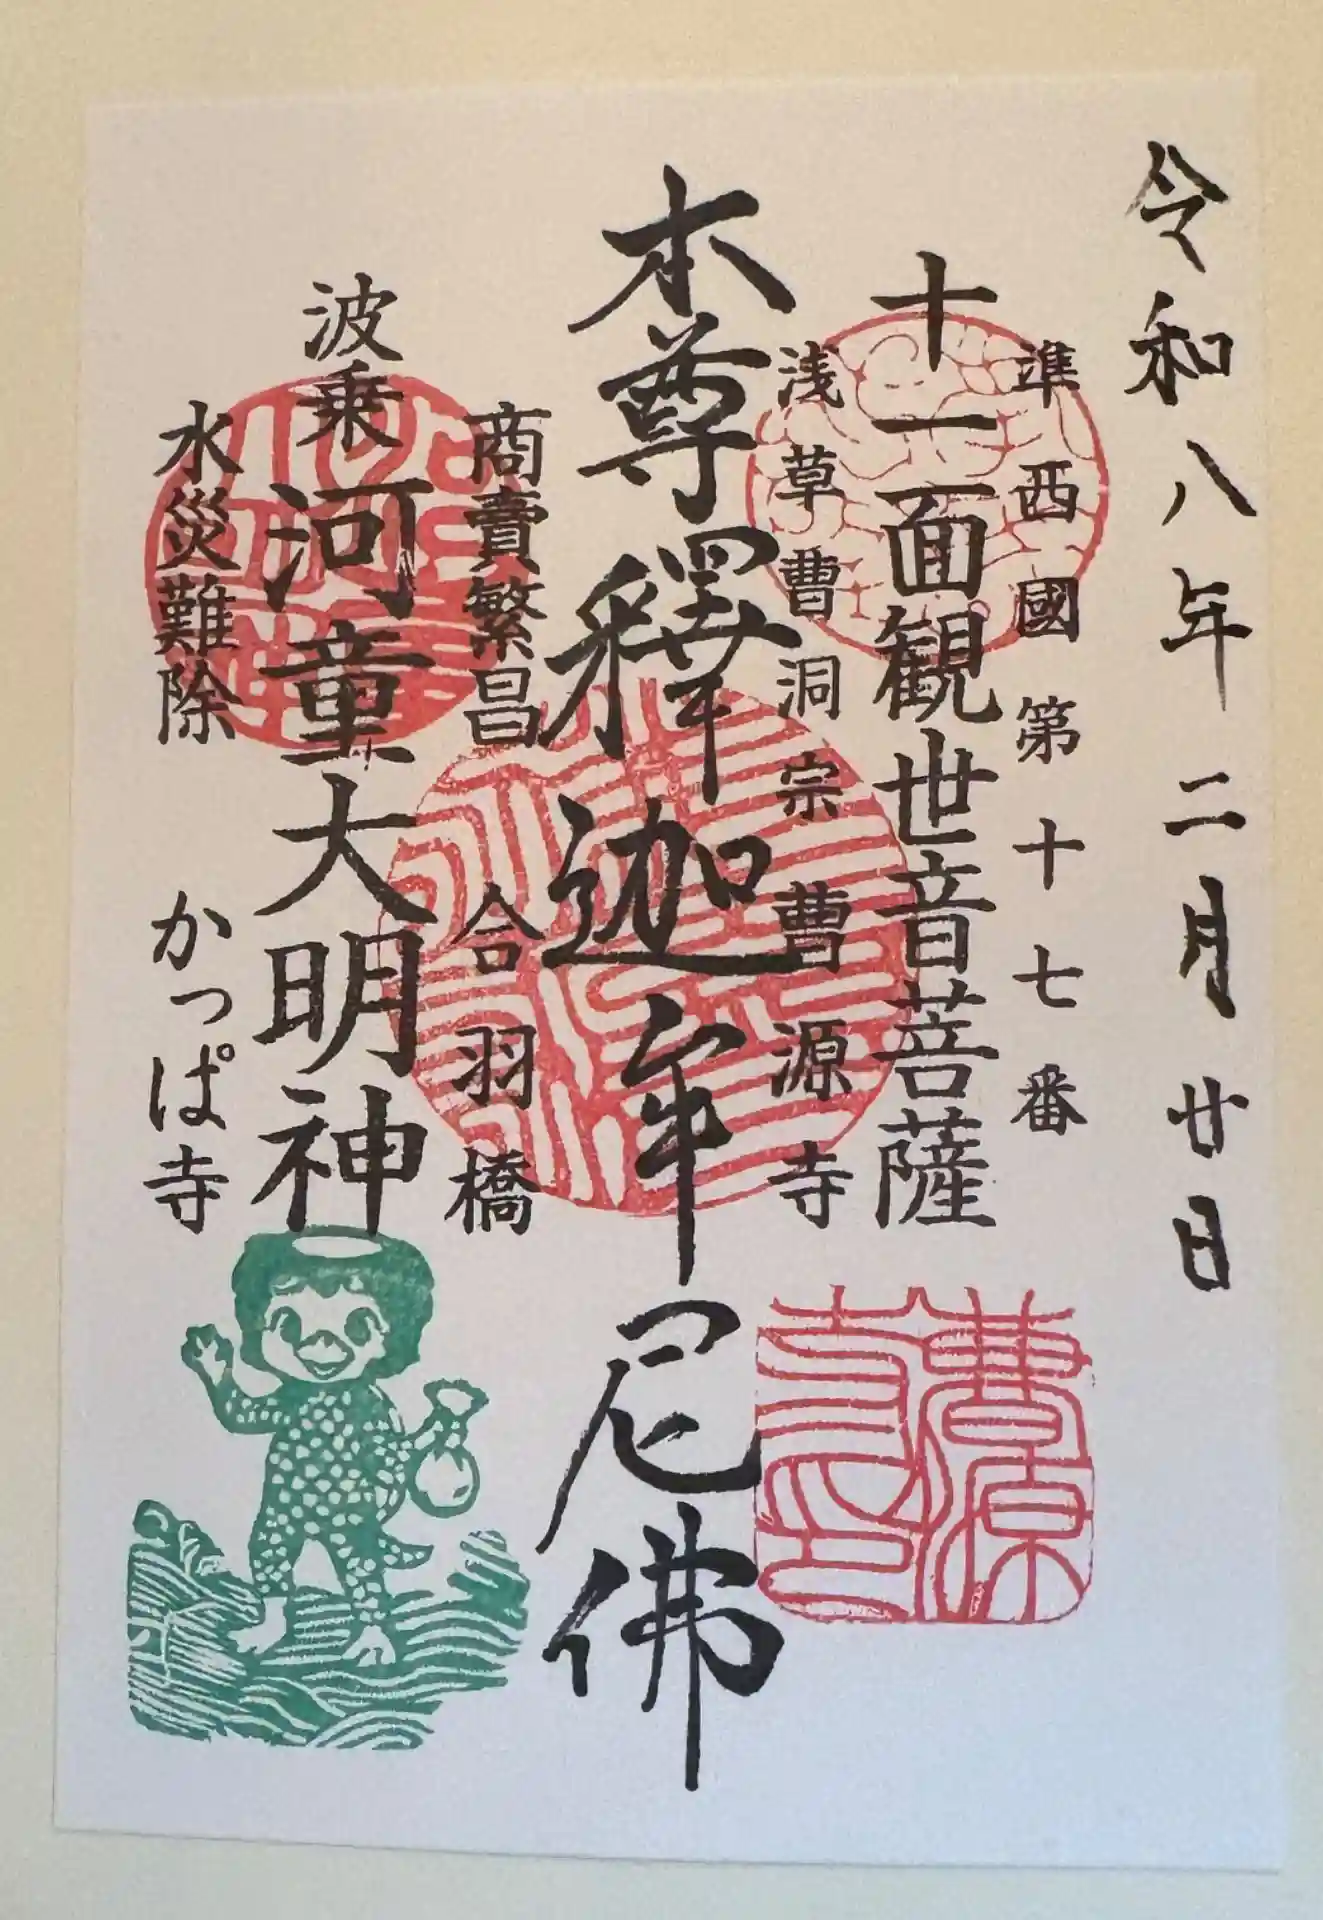 令和八年二月廿日
準西國第十七番
十一面観世音菩薩
浅草曹洞宗曹源寺
本尊釋迦牟尼佛
商賣繁昌
合羽橋
波乗河童大明神
水災難除
かっぱ寺
曹源
寺印